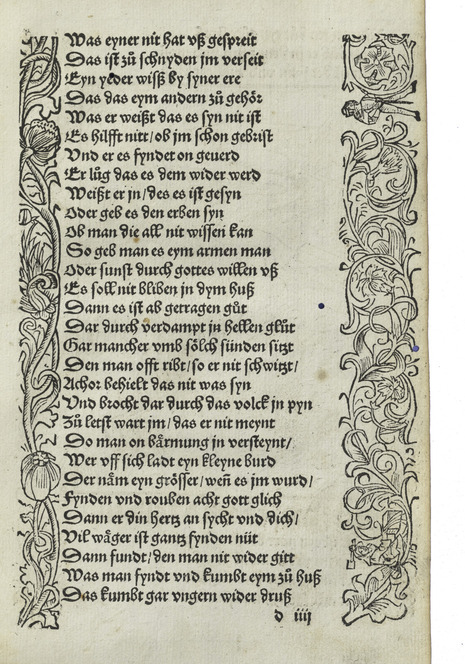 Was eyner nit hat vß gespreit
Das ist zů schnyden jm verseit
Eyn yeder wisß by syner ere
Das das eym andern zů gehör
Was er weißt das es syn nit ist
Es hilfft nitt / ob jm schon gebrist
Vnd er es fyndet on geuerd
Er lůg das es dem wider werd
Weißt er jn / des es ist gesyn
Oder geb es den erben syn
Ob man die all nit wissen kan
So geb man es eym armen man
Oder sunst durch gottes willen vß
Es soll nit bliben in dym huß
Dann es ist ab getragen gůt
Dar durch verdampt in hellen glůt
Gar mancher vmb sölch sünden sitzt
Den man offt ribt / so er nit schwitzt /
Achor behielt das nit was syn
Vnd brocht dar durch das volck jn pyn
Zů letst wart jm / das er nit meynt
Do man on bärmung jn versteynt /
Wer vff sich ladt eyn kleyne burd
Der näm eyn grösser / weñ es jm wurd /
Fynden vnd rouben acht gott glich
Dann er din hertz an sycht vnd dich /
Vil wäger ist gantz fynden nüt
Dann fundt / den man nit wider gitt
Was man fyndt vnd kumbt eym zů huß
Das kumbt gar vngern wider druß
d iiij